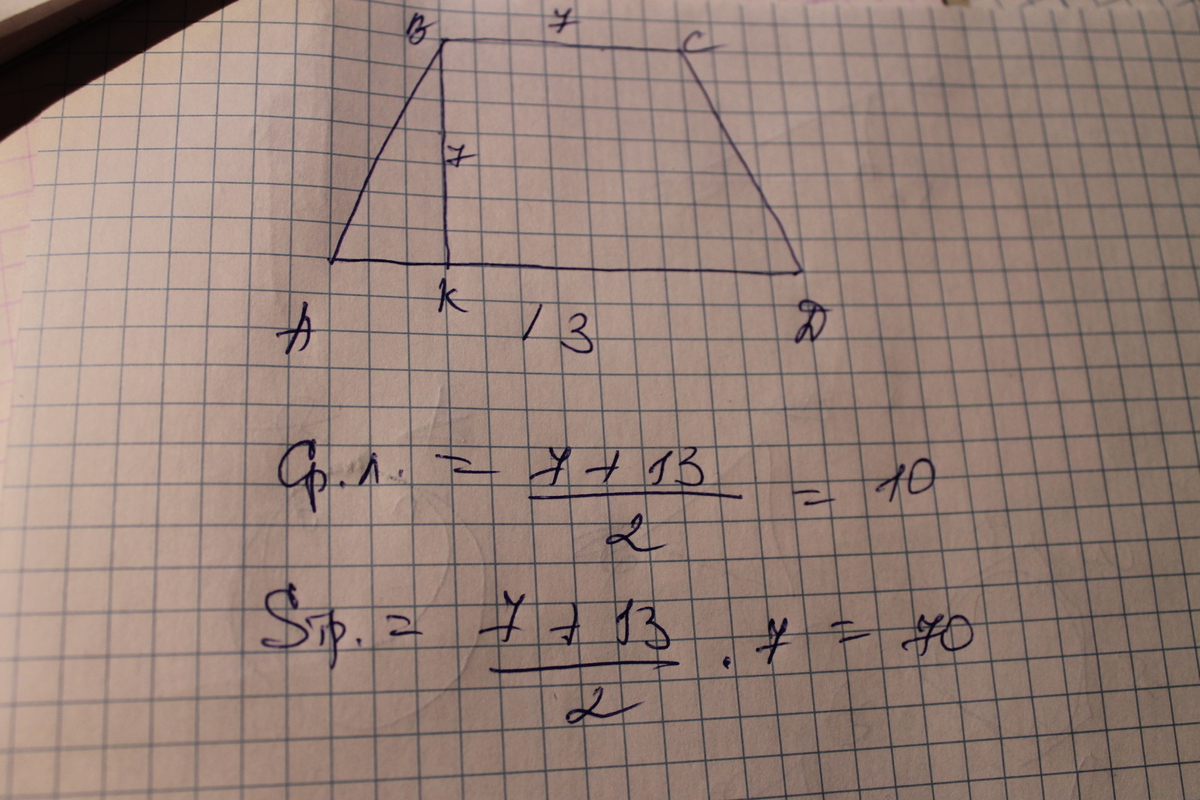 B 7 C
7
K
A 13 D
Ср. л. = 7 + 13 / 2 = 10
Sтр. = 7 + 13 / 2 . 7 = 70